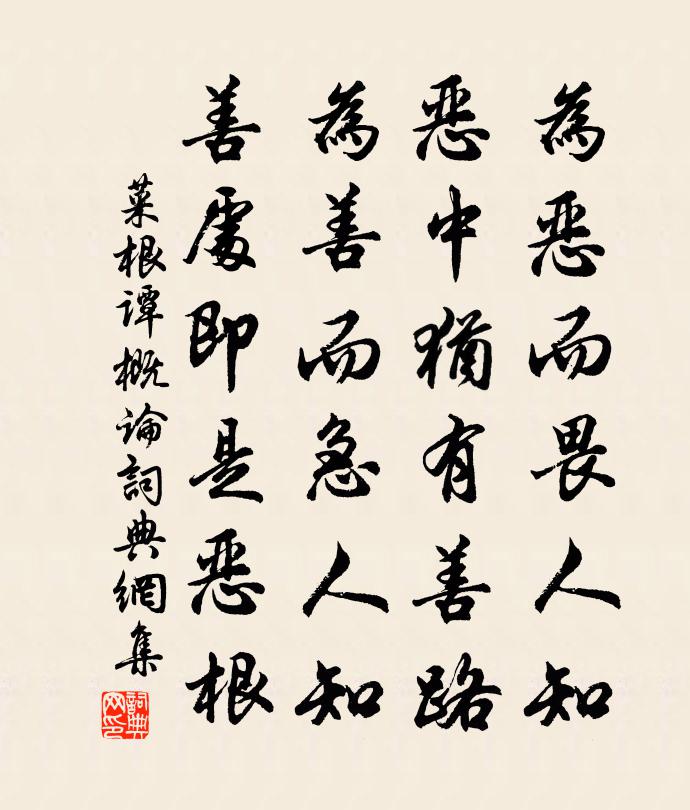 為惡而畏人知
惡中猶有善路
為善而急人知
善處即是惡根
菜根譚概論詞典網集
詞典
网印